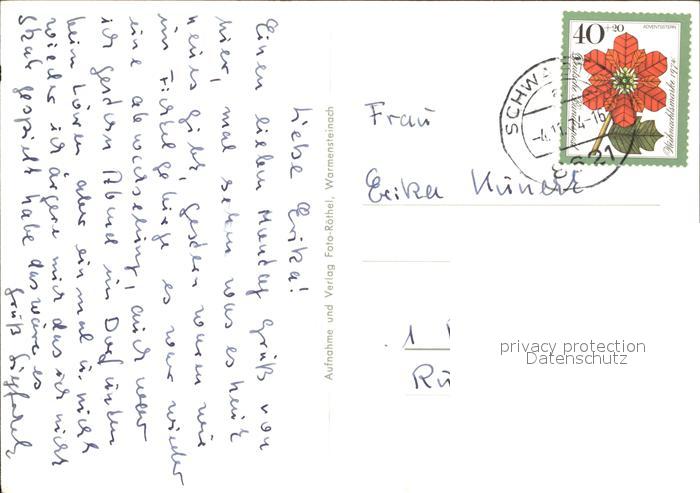 Liebe Erika!
Einen lieben Monday Gruß von
hier, mal sehen was es heut
neues gibt, gestern waren wir
im Fichtelgebirge es war wieder
eine abwechselung, auch war
ich gestern Abend im Dorf unten
beim tanzen aber einmal u. nicht
wieder ich ärgere mich das ich nicht
Skat gespielt habe das wäre es
Gruß
Aufnahme und Verlag Foto-Röthel, Warmensteinach
Frau
Erika Künert
1
Rü
40+20
ADVENTSSTERN
Deutsche Bundespost
Weihnachtsmarke 1974
SCHW
-4.11.7 -16
privacy protection
Datenschutz